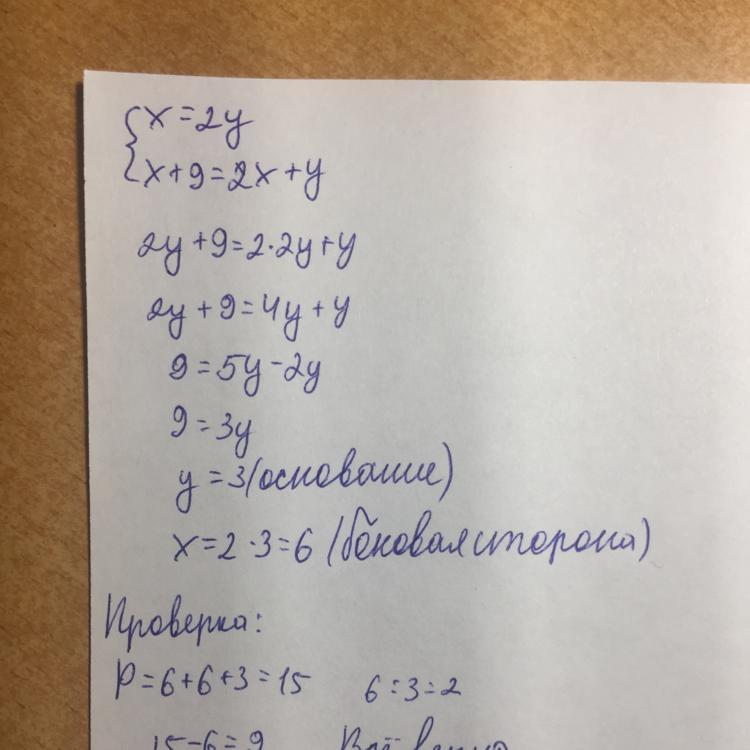 x=2y
x+9=2x+y
2y+9=2·2y+y
2y+9=4y+y
9=5y-2y
9=3y
y=3(основание)
x=2·3=6 (боковая сторона)
Проверка:
P=6+6+3=15 6:3=2
15-6=9 Всё верно